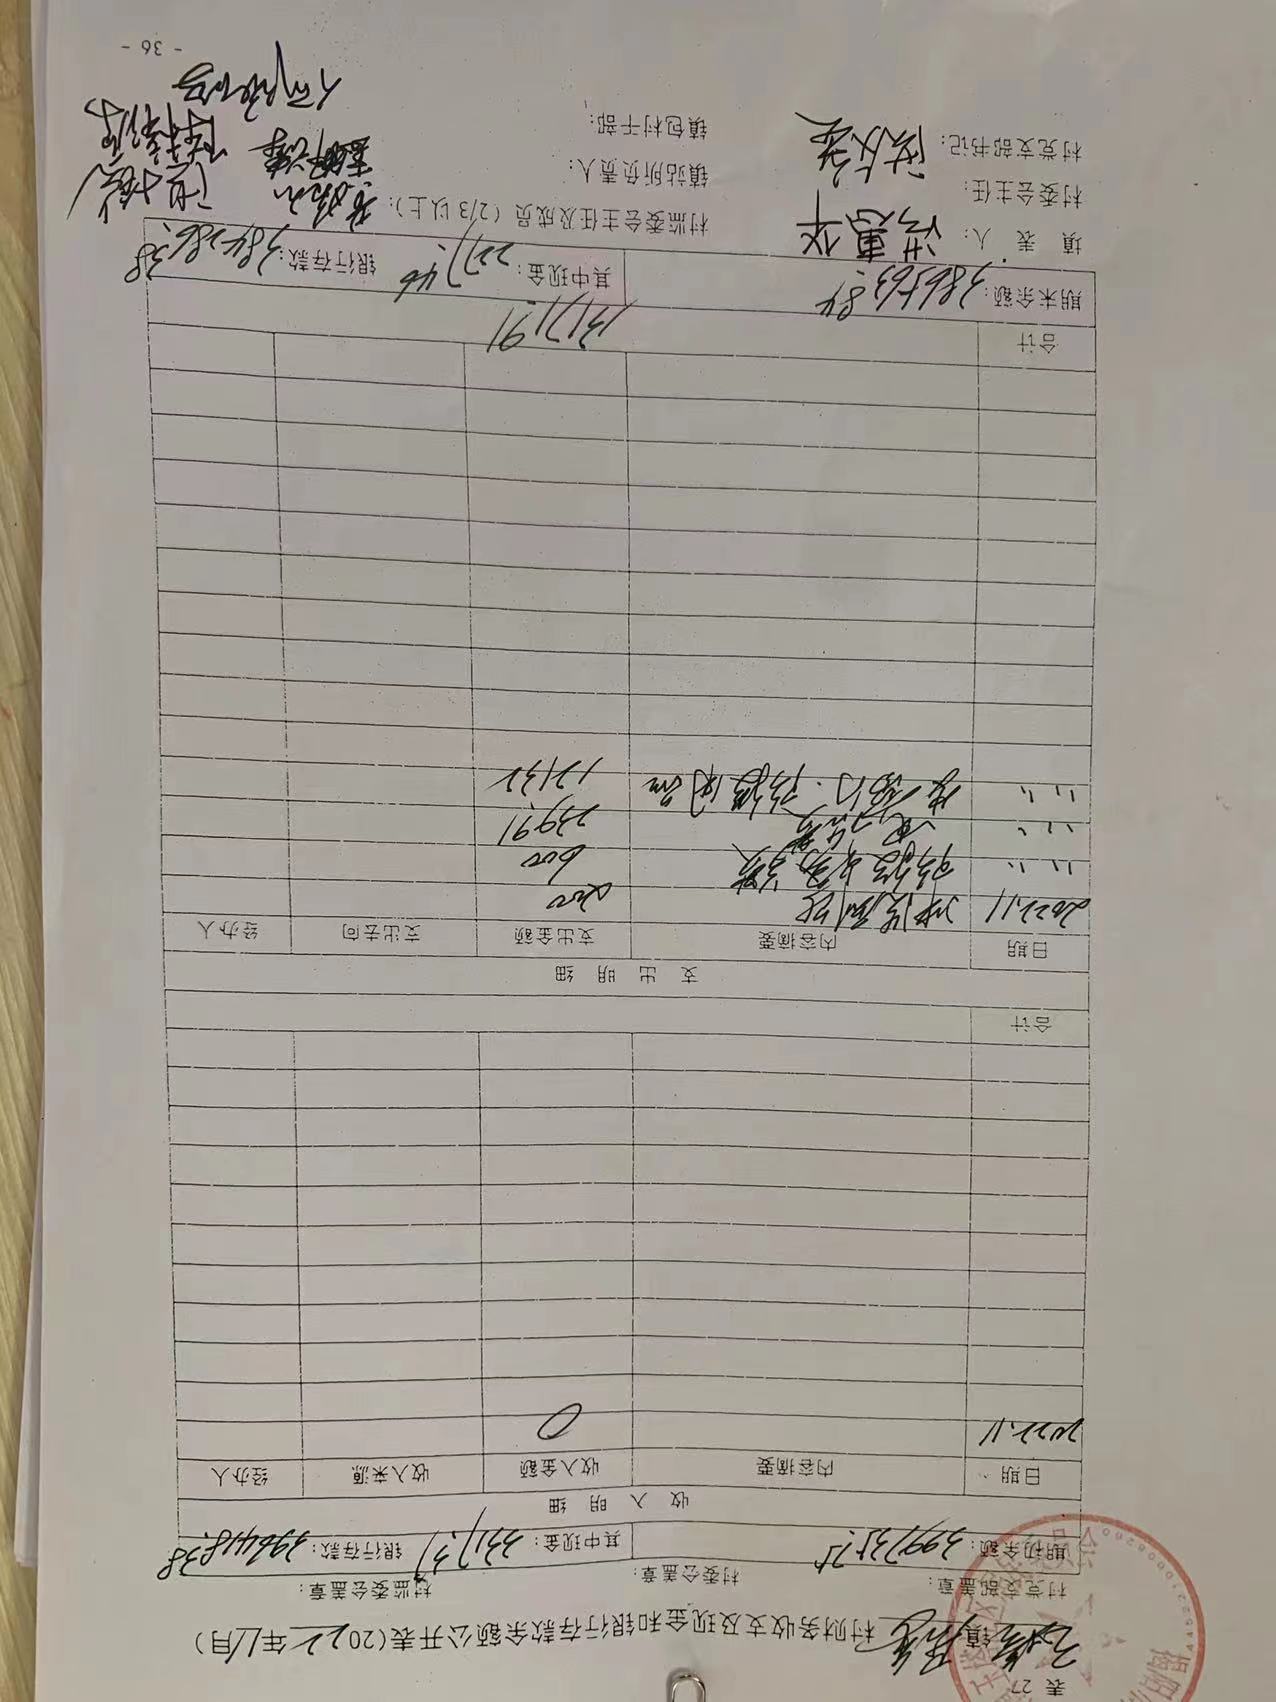 表 27
镇 村财务收支及现金和银行存款余额公开表(2022年11月)
村党支部盖章: 村委会盖章: 村监委会盖章:
期初余额: 399735.75 其中现金: 3317.37 银行存款: 396418.38
收 入 明 细
日期 内容摘要 收入金额 收入来源 经办人
2022.11 0
合计
支 出 明 细
日期 内容摘要 支出金额 支出去向 经办人
2022.11 200
〃 〃 防疫 600
〃 〃 239.91
〃 〃 12132
合计 13171.91
期末余额: 386563.84 其中现金: 2277.46 银行存款: 384286.38
填 表 人: 洪惠华 村监委会主任及成员(2/3以上):
村委会主任: 镇站所负责人:
村党支部书记: 镇包村干部:
- 36 -